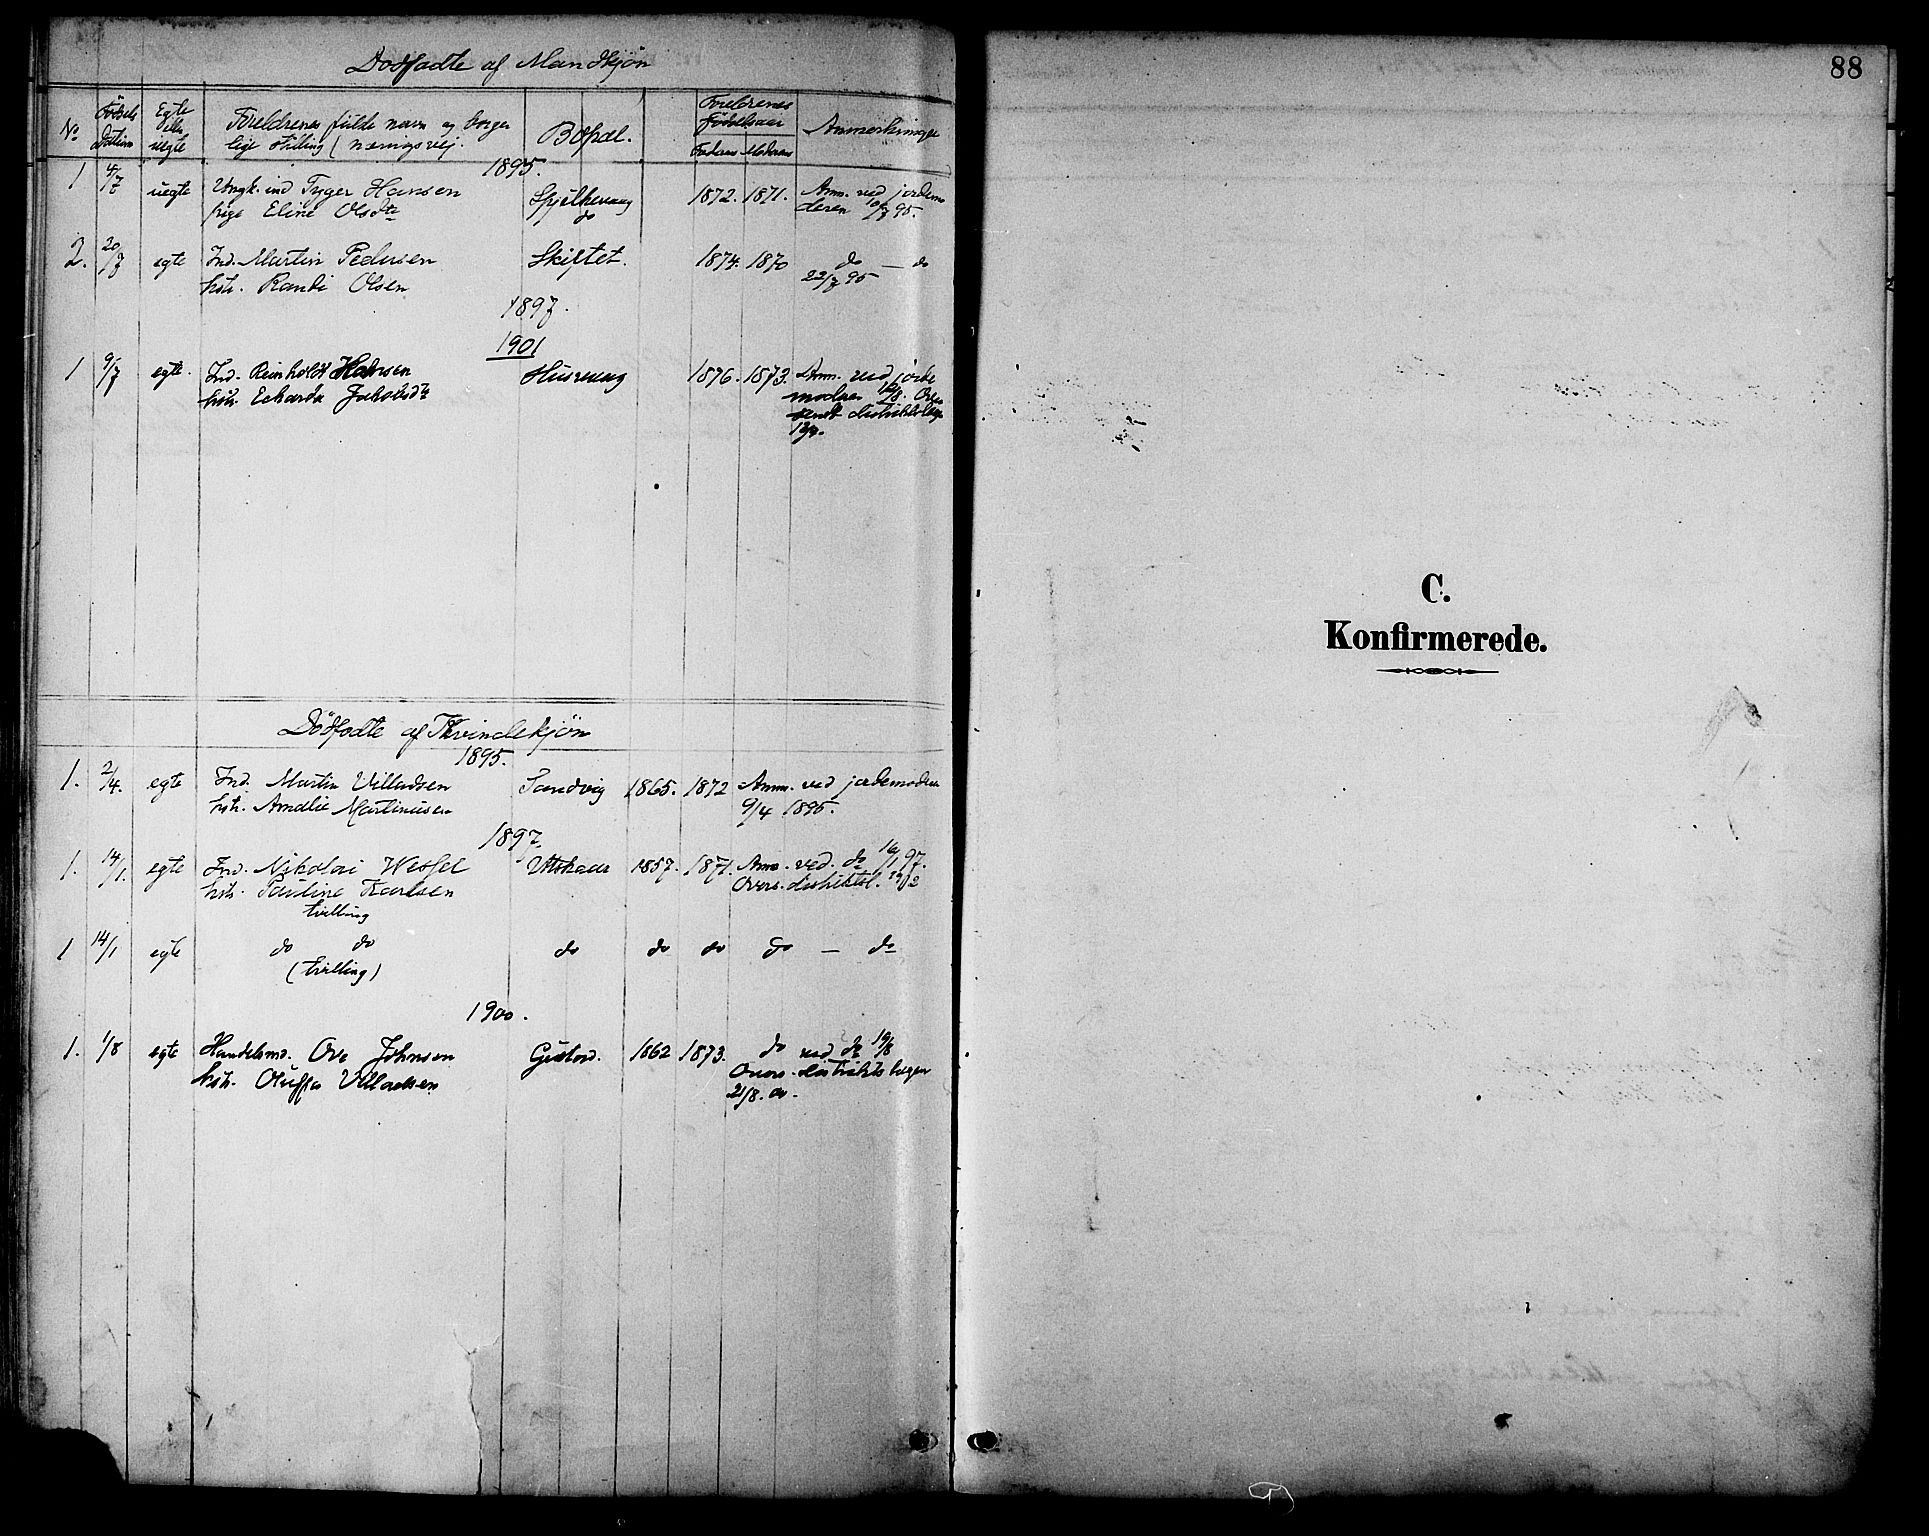 Dødfødte af Mandkjøn
No
Fødsels Datum
Egte eller uegte
Foreldrenes fulde navn og borger
lige stilling (næringsvej.
Bopæl.
Foreldrenes Fødselsaar
Faderens Moderens
Anmerkninger
1895.
1 4/7 uegte Ungk. ind Tyger Hansen Spjelkevaag 1872. 1871. Anm. ved jordemo
pige Eline Olsdtr do deren 10/7 95.
2. 20/7 egte Ind. Martin Pedersen Skiftet. 1874. 1870 do — do
hstr. Randi Olsen 22/7 95
1897.
1901
1 9/7 egte. Ind. Reinholdt Hansen Husvaag 1876. 1873. Anm. ved jorde
hstr. Echarda Jakobsdtr moderen
sendt distriktslæge
Dødfødte af Kvindekjøn
1895.
1. 2/4. egte Ind. Martin Villadsen Sandvig 1865. 1872 Anm. ved jordemoderen
hstr. Amalie Martinusen 9/4 1895.
1897.
1. 14/1. egte Ind. Nikolai Wessel Utskaar 1857. 1871. Anm. ved. do 16/1 97.
hstr. Pauline Karlsen Overs. distriktsl.
tvilling
1 14/1 egte do do do do do do — do
(tvilling)
1900.
1. 1/8 egte Handelsmd. Ove Johnsen 1862 1873. do ved do 19/8
hstr. Oluffa Villadsen Overs. distriktslægen
21/8. 00.
88
C.
Konfirmerede.